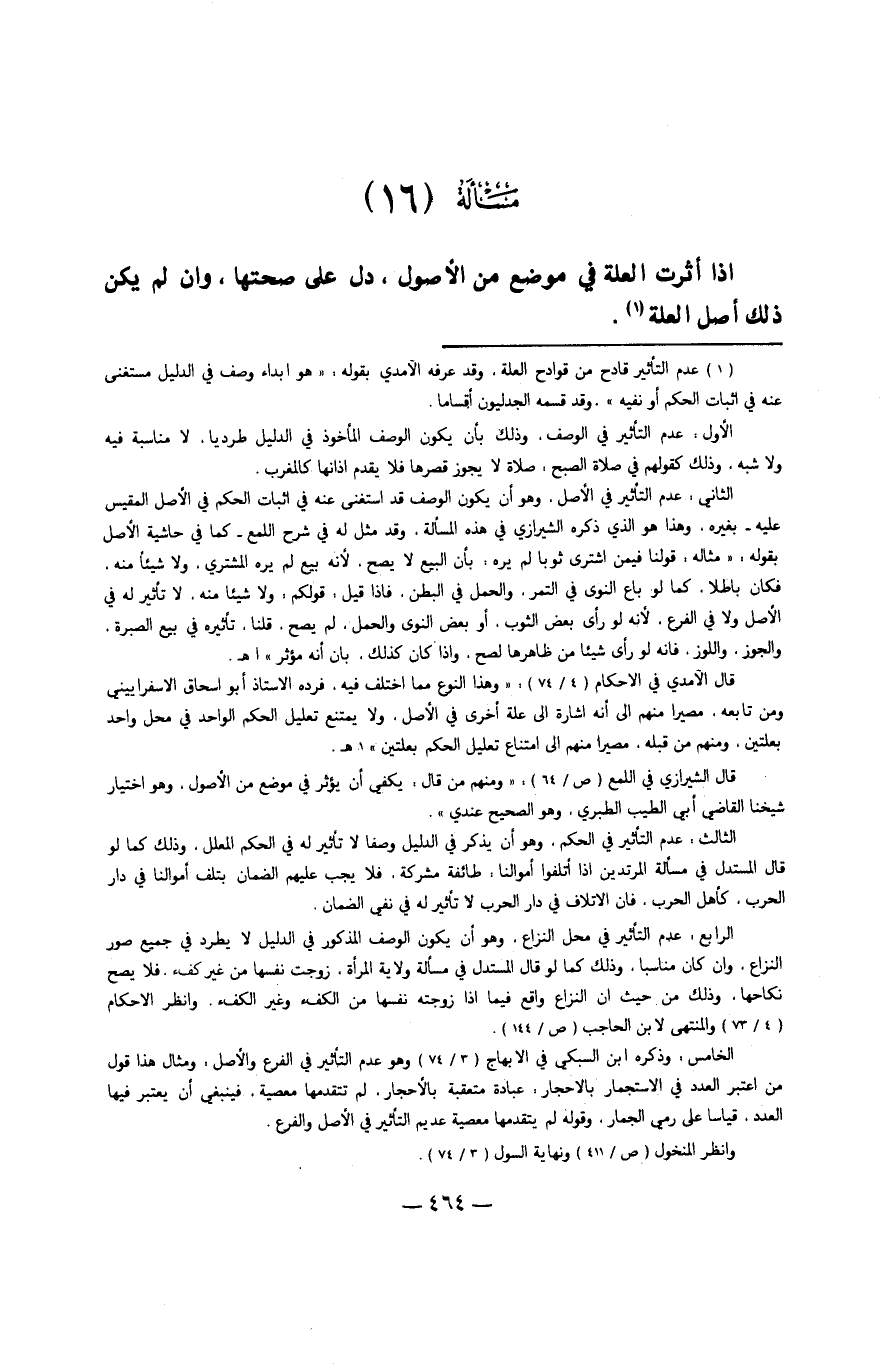 مسألة (١٦)
اذا أثرت العلة في موضع من الأصول ، دل على صحتها ، وان لم يكن
ذلك أصل العلة (١) .
(١) عدم التأثير قادح من قوادح العلة . وقد عرفه الآمدي بقوله : « هو ابداء وصف في الدليل مستغنى
عنه في اثبات الحكم أو نفيه » . وقد قسمه الجدليون أقساما .
الأول : عدم التأثير في الوصف . وذلك بأن يكون الوصف المأخوذ في الدليل طرديا . لا مناسبة فيه
ولا شبه . وذلك كقولهم في صلاة الصبح : صلاة لا يجوز قصرها فلا يقدم اذانها كالمغرب .
الثاني : عدم التأثير في الأصل . وهو أن يكون الوصف قد استغنى عنه في اثبات الحكم في الأصل المقيس
عليه ـ بغيره . وهذا هو الذي ذكره الشيرازي في هذه المسألة . وقد مثل له في شرح اللمع ـ كما في حاشية الأصل
بقوله : « مثاله : قولنا فيمن اشترى ثوبا لم يره : بأن البيع لا يصح . لأنه بيع لم يره المشتري . ولا شيئاً منه .
فكان باطلا . كما لو باع النوى في التمر . والحمل في البطن . فاذا قيل : قولكم : ولا شيئا منه . لا تأثير له في
الأصل ولا في الفرع . لأنه لو رأى بعض الثوب . أو بعض النوى والحمل . لم يصح . قلنا . تأثيره في بيع الصبرة .
والجوز . واللوز . فانه لو رأى شيئا من ظاهرها لصح . واذا كان كذلك . بان أنه مؤثر » ا هـ .
قال الآمدي في الاحكام ( ٤ / ٧٤ ) : « وهذا النوع مما اختلف فيه . فرده الاستاذ أبو اسحاق الاسفراييني
ومن تابعه . مصيرا منهم الى أنه اشارة الى علة أخرى في الأصل . ولا يمتنع تعليل الحكم الواحد في محل واحد
بعلتين . ومنهم من قبله . مصيرا منهم الى امتناع تعليل الحكم بعلتين » ١ هـ .
قال الشيرازي في اللمع ( ص / ٦٤ ) : « ومنهم من قال : يكفي أن يؤثر في موضع من الأصول . وهو اختيار
شيخنا القاضي أبي الطيب الطبري . وهو الصحيح عندي » .
الثالث : عدم التأثير في الحكم . وهو أن يذكر في الدليل وصفا لا تأثير له في الحكم المعلل . وذلك كما لو
قال المستدل في مسألة المرتدين اذا أتلفوا أموالنا : طائفة مشركة . فلا يجب عليهم الضمان بتلف أموالنا في دار
الحرب . كأهل الحرب . فان الاتلاف في دار الحرب لا تأثير له في نفي الضمان .
الرابع : عدم التأثير في محل النزاع . وهو أن يكون الوصف المذكور في الدليل لا يطرد في جميع صور
النزاع . وان كان مناسبا . وذلك كما لو قال المستدل في مسألة ولاية المرأة . زوجت نفسها من غير كفء . فلا يصح
نكاحها . وذلك من حيث ان النزاع واقع فيما اذا زوجته نفسها من الكفء وغير الكفء . وانظر الاحكام
( ٤ / ٧٣ ) والمنتهى لابن الحاجب ( ص / ١٤٤ ) .
الخامس : وذكره ابن السبكي في الابهاج ( ٣ / ٧٤ ) وهو عدم التأثير في الفرع والأصل : ومثال هذا قول
من اعتبر العدد في الاستجمار بالاحجار : عبادة متعقبة بالأحجار . لم تتقدمها معصية . فينبغي أن يعتبر فيها
العدد . قياسا على رمي الجمار . وقوله لم يتقدمها معصية عديم التأثير في الأصل والفرع .
وانظر المنخول ( ص / ٤١١ ) ونهاية السول ( ٣ / ٧٤ ) .
— ٤٦٤ —